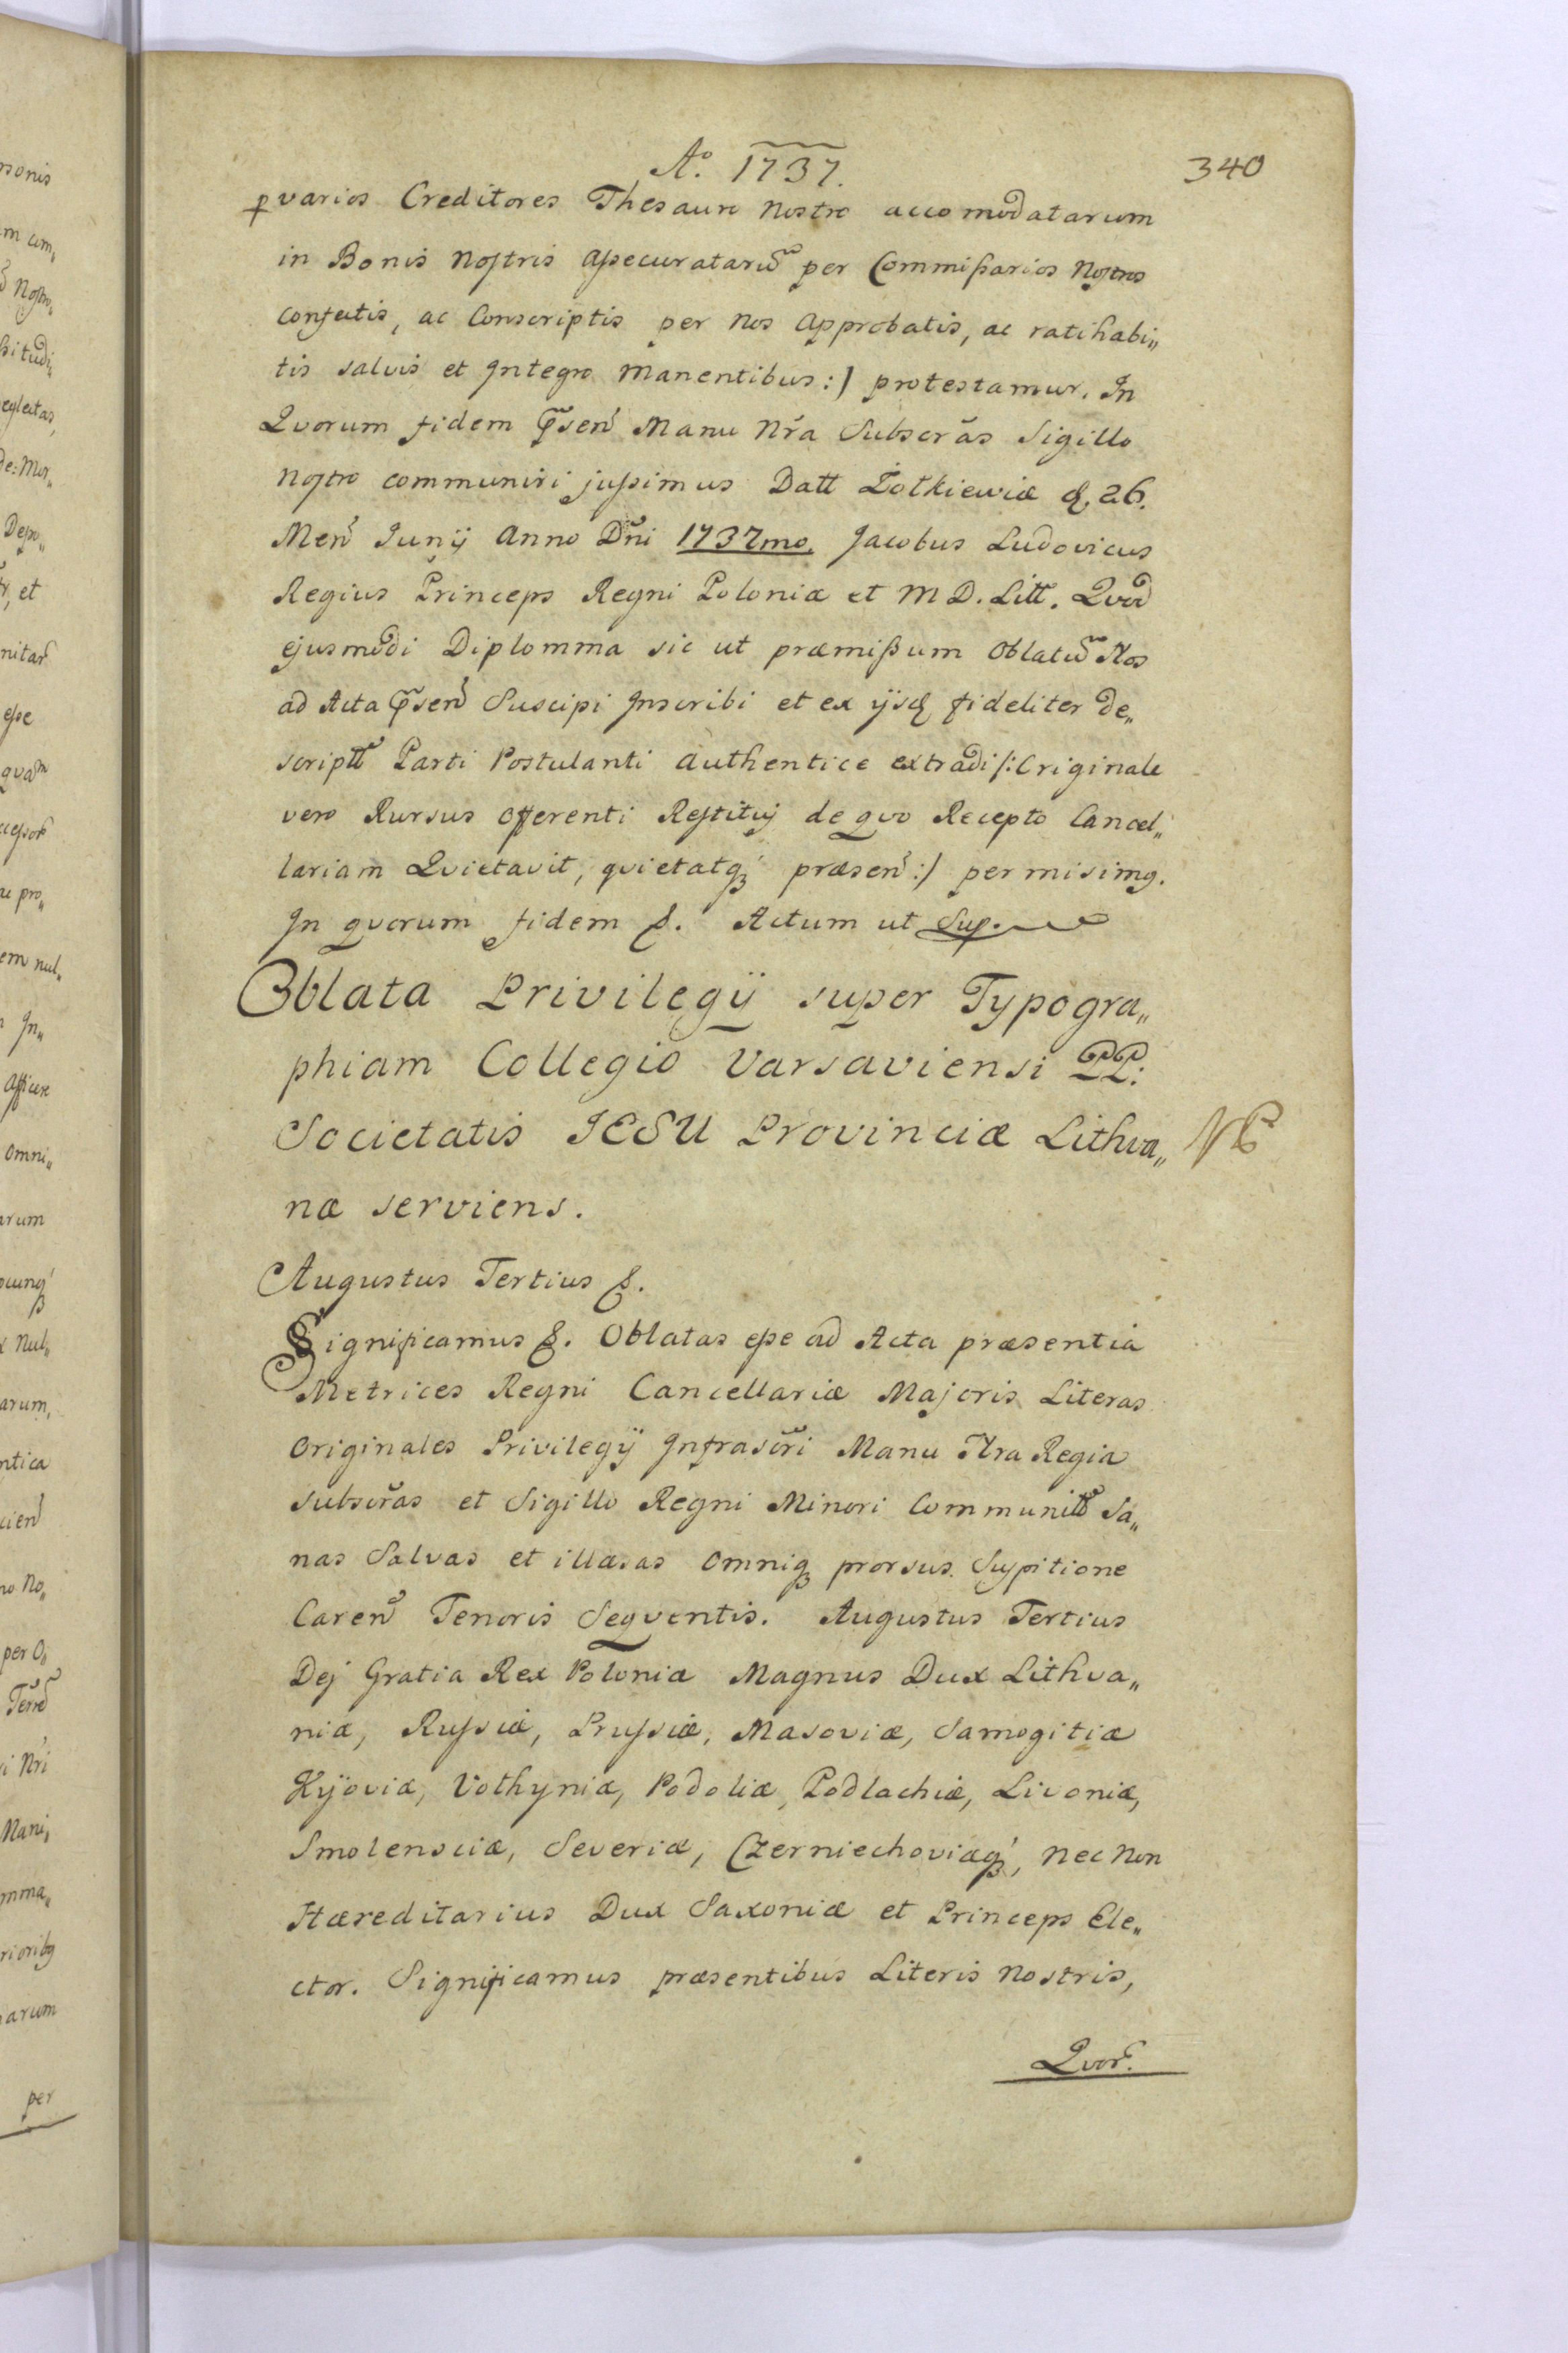 Aº. 1737.
340
p varios Creditores Thesauro Nostro accomodatarum
in Bonis Nostris assecuratarũ per Commissarios Nostros
confectis, ac Conscriptis per Nos Approbatis, ac ratihabi„
tis salvis et Integro Manentibus:/ protestamur. In
Qvorum fidem p̃sen Manu Nr̃a Subscr̃as Sigillo
Nostro communiri jussimus Datt Żołkieviæ d. 26.
Men Junij Anno Dñi 1737mo. Jacobus Ludovicus
Regius Princeps Regni Poloniæ et M D. Litt. Qvod
ejusmodi Diplomma sic ut præmissum Oblatũ Nos
ad Acta p̃sen Suscipi Inscribi et ex ijsq fideliter de„
scriptũ Parti Postulanti Authentice extradi /: Originale
vero Rursus Offerenti Restituj de qvo Recepto Cancel„
lariam Qvietavit, qvietatq præsen :/ permisimq.
In qvorum fidem &. Actum ut Sup.
Oblata Privilegij super Typogra„
phiam Collegio Varsaviensi PP:
Societatis JESU Provinciæ Lithva„
NB
næ serviens.
Augustus Tertius &.
Significamus &. Oblatas esse ad Acta præsentia
Metrices Regni Cancellariæ Majoris Literas
Originales Privilegij Infrascr̃i Manu Nr̃a Regia
subscr̃as et Sigillo Regni Minori Communitũ Sa„
nas Salvas et illæsas Omniq prorsus Suspitione
Caren Tenoris Seqventis. Augustus Tertius
Dej Gratia Rex Poloniæ Magnus Dux Lithva„
niæ, Russiæ, Prussiæ, Masoviæ, Samogitiæ
Kijoviæ, Volhyniæ, Podoliæ, Podlachiæ, Livoniæ,
Smolensciæ, Severiæ, Czerniechoviæq, Nec Non
Hæreditarius Dux Saxoniæ et Princeps Ele„
ctor. Significamus præsentibus Literis Nostris,
Qvor.